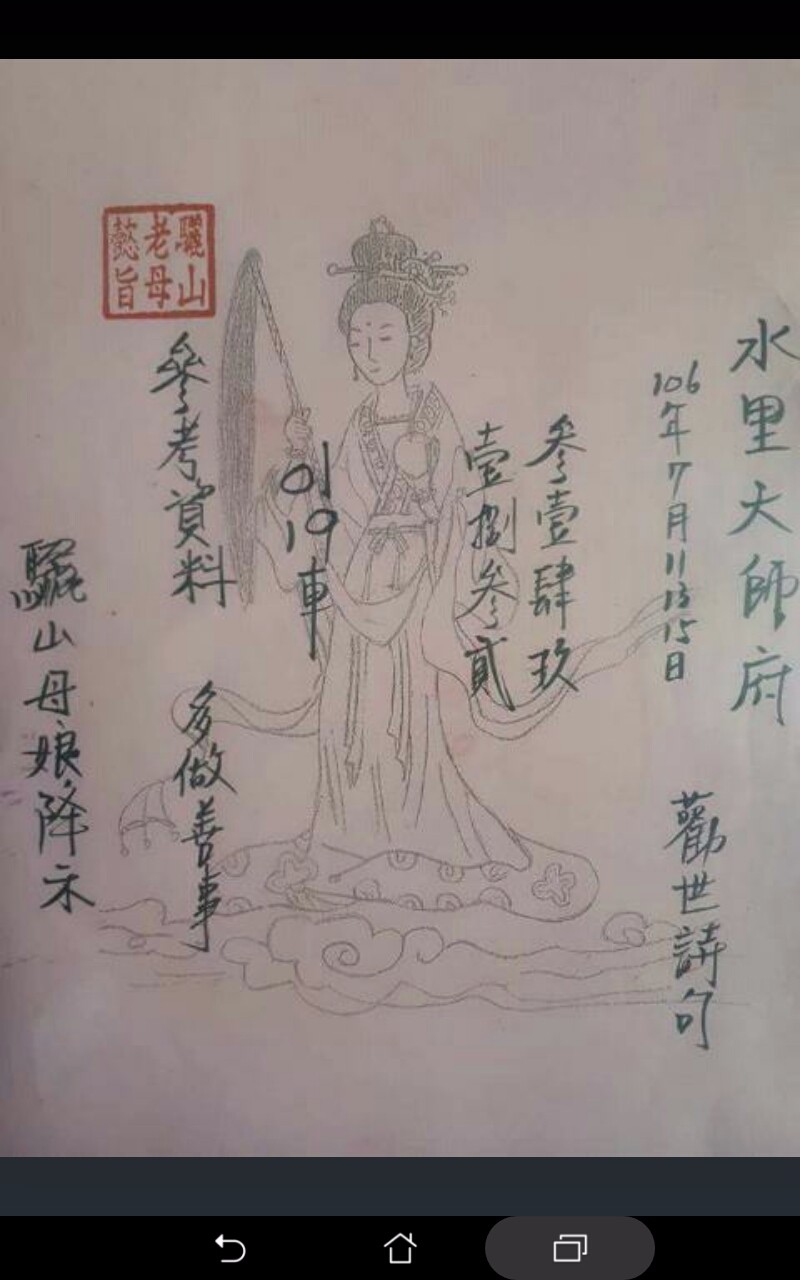 水里大師府
106年7月11 13 15日
勸世詩句
參壹肆玖
壹捌參貳
01
19
車
驪山
老母
懿旨
參考資料
多做善事
驪山母娘降示